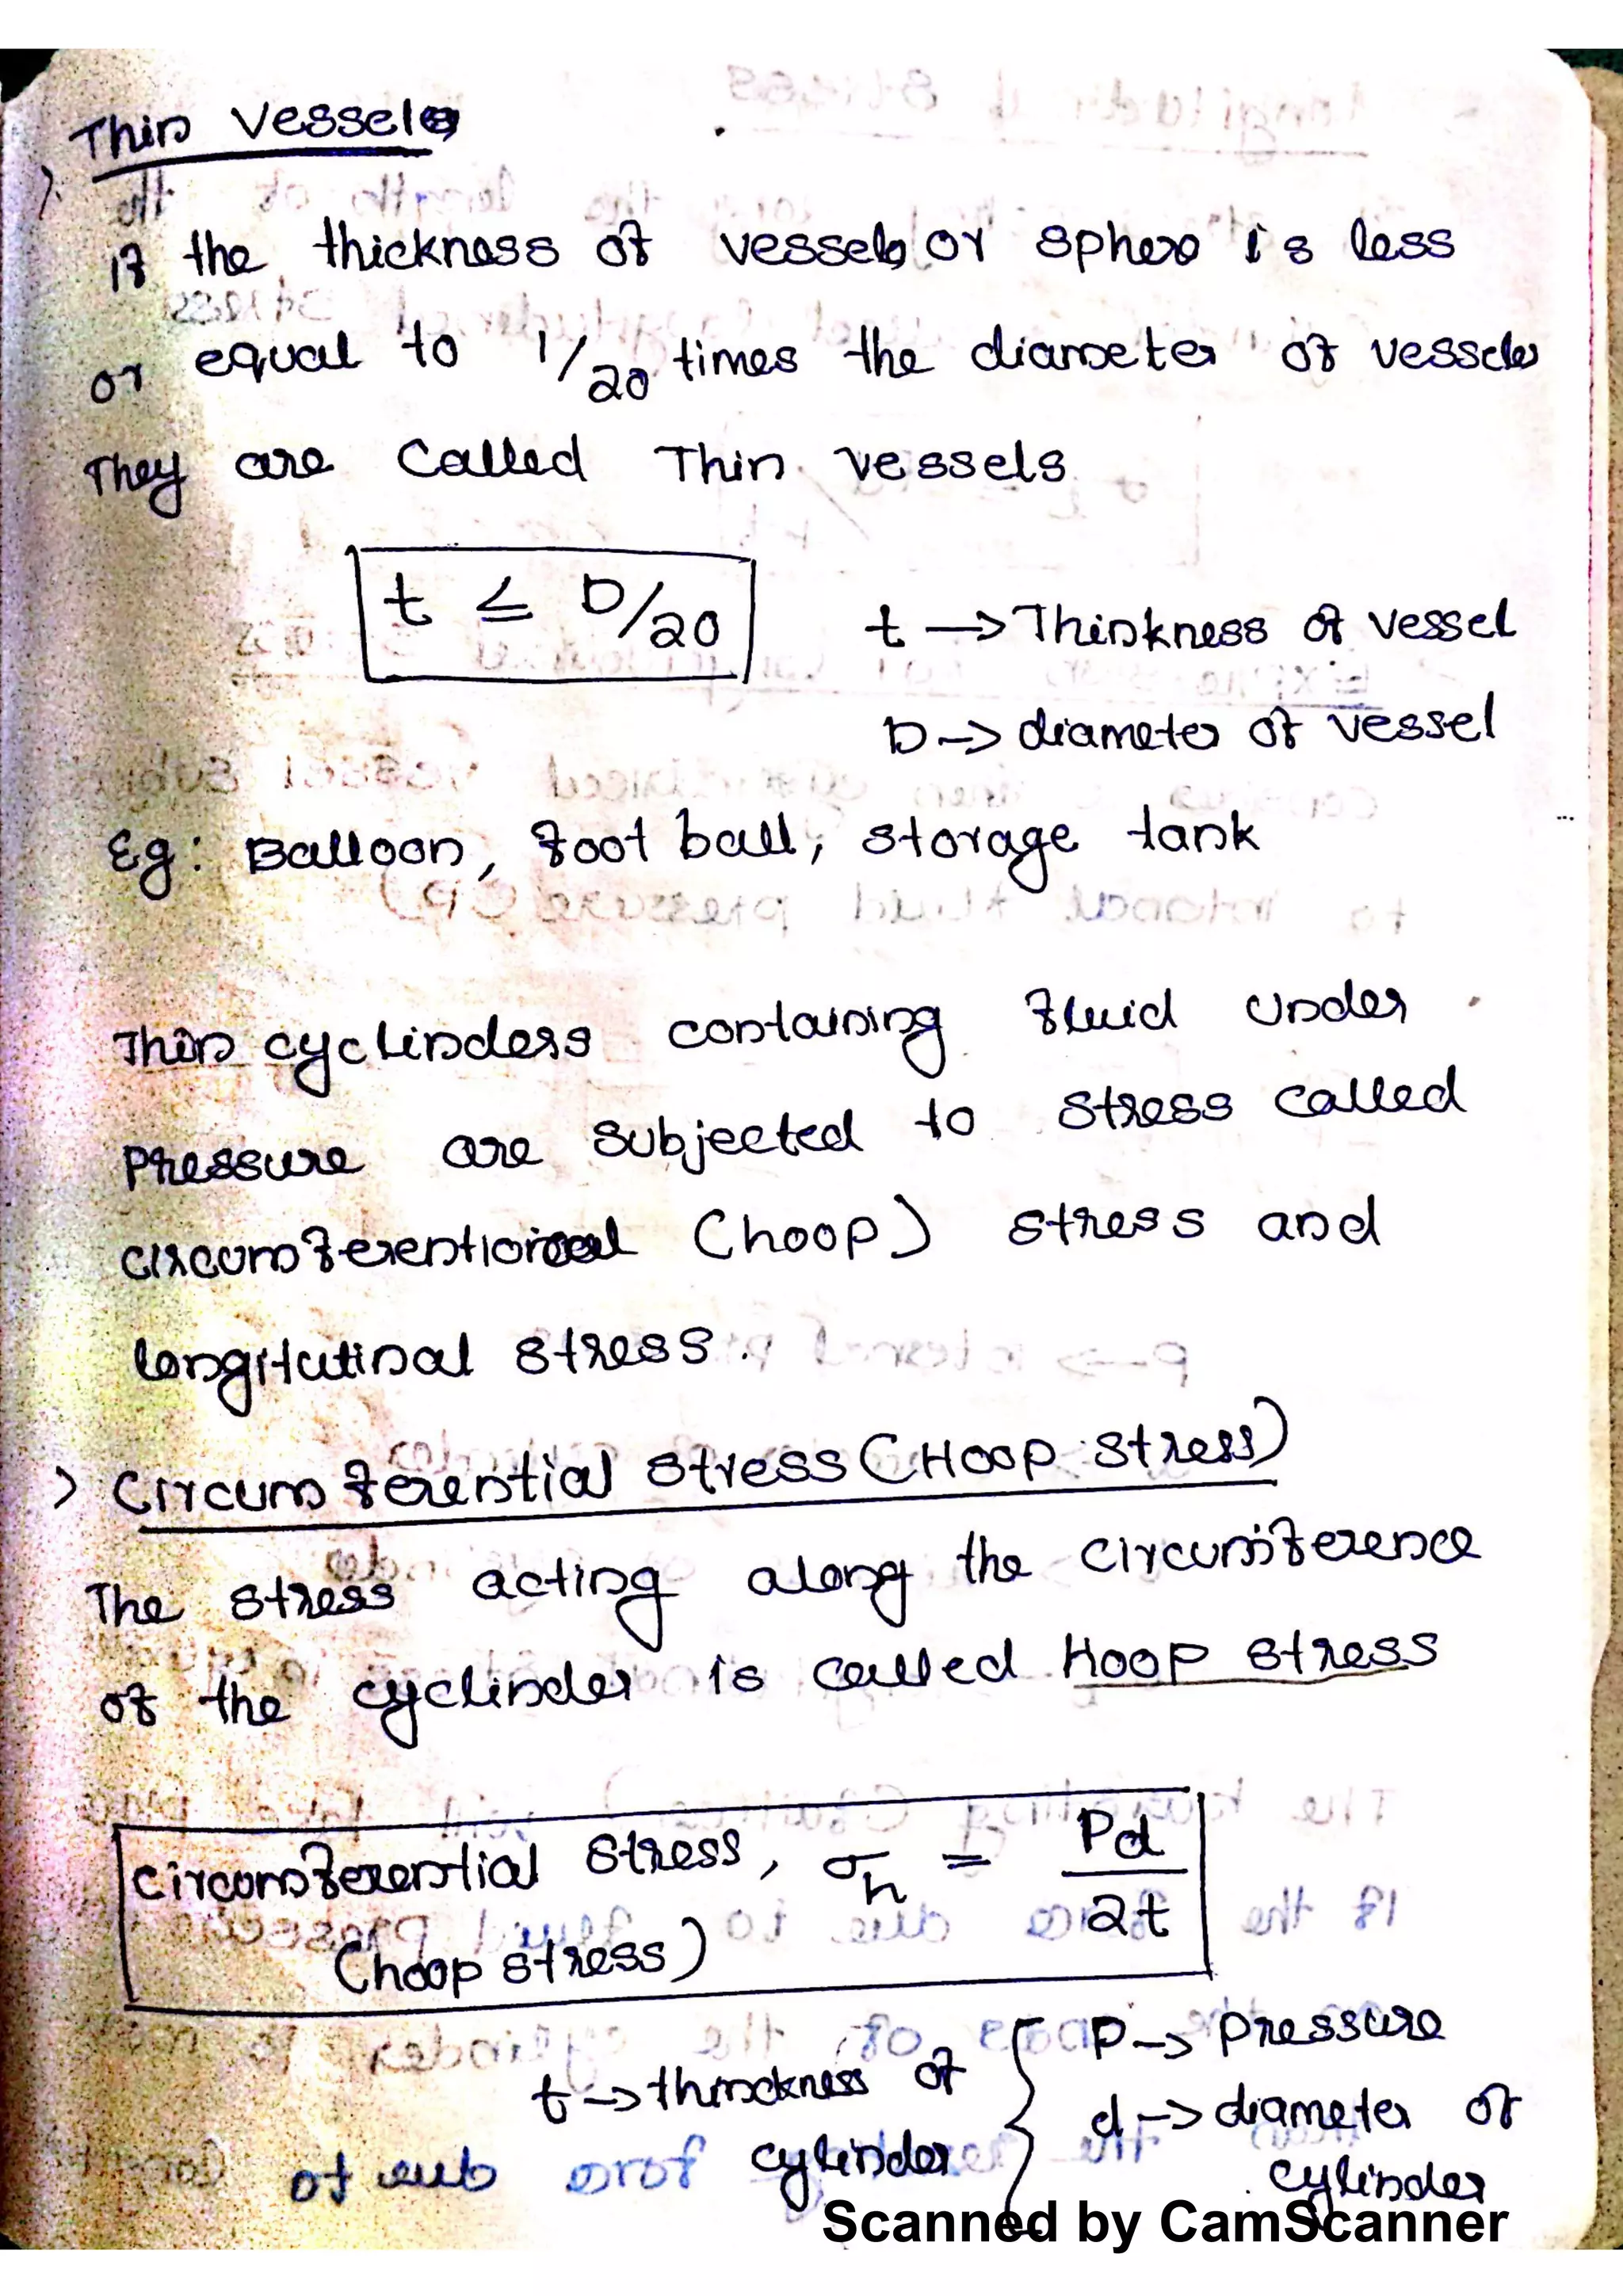 Thin Vessels
> If the thickness of vessels or sphere is less
or equal to 1/20 times the diameter of vessels
They are Called Thin vessels
t ≤ D/20
t → Thinkness of vessel
D → diameter of vessel
Eg: Balloon, foot ball, storage tank
Thin cyclinders containing fluid under
Pressure are subjected to stress called
circumferential (hoop) stress and
longitutinal stress.
> Circumferential stress (Hoop stress)
The stress acting along the circumference
of the cyclinder is called Hoop stress
Circumferential stress, σh = Pd/2t
(hoop stress)
P → Pressure
t → thinckness of cylinder
d → diameter of cylinder
Scanned by CamScanner